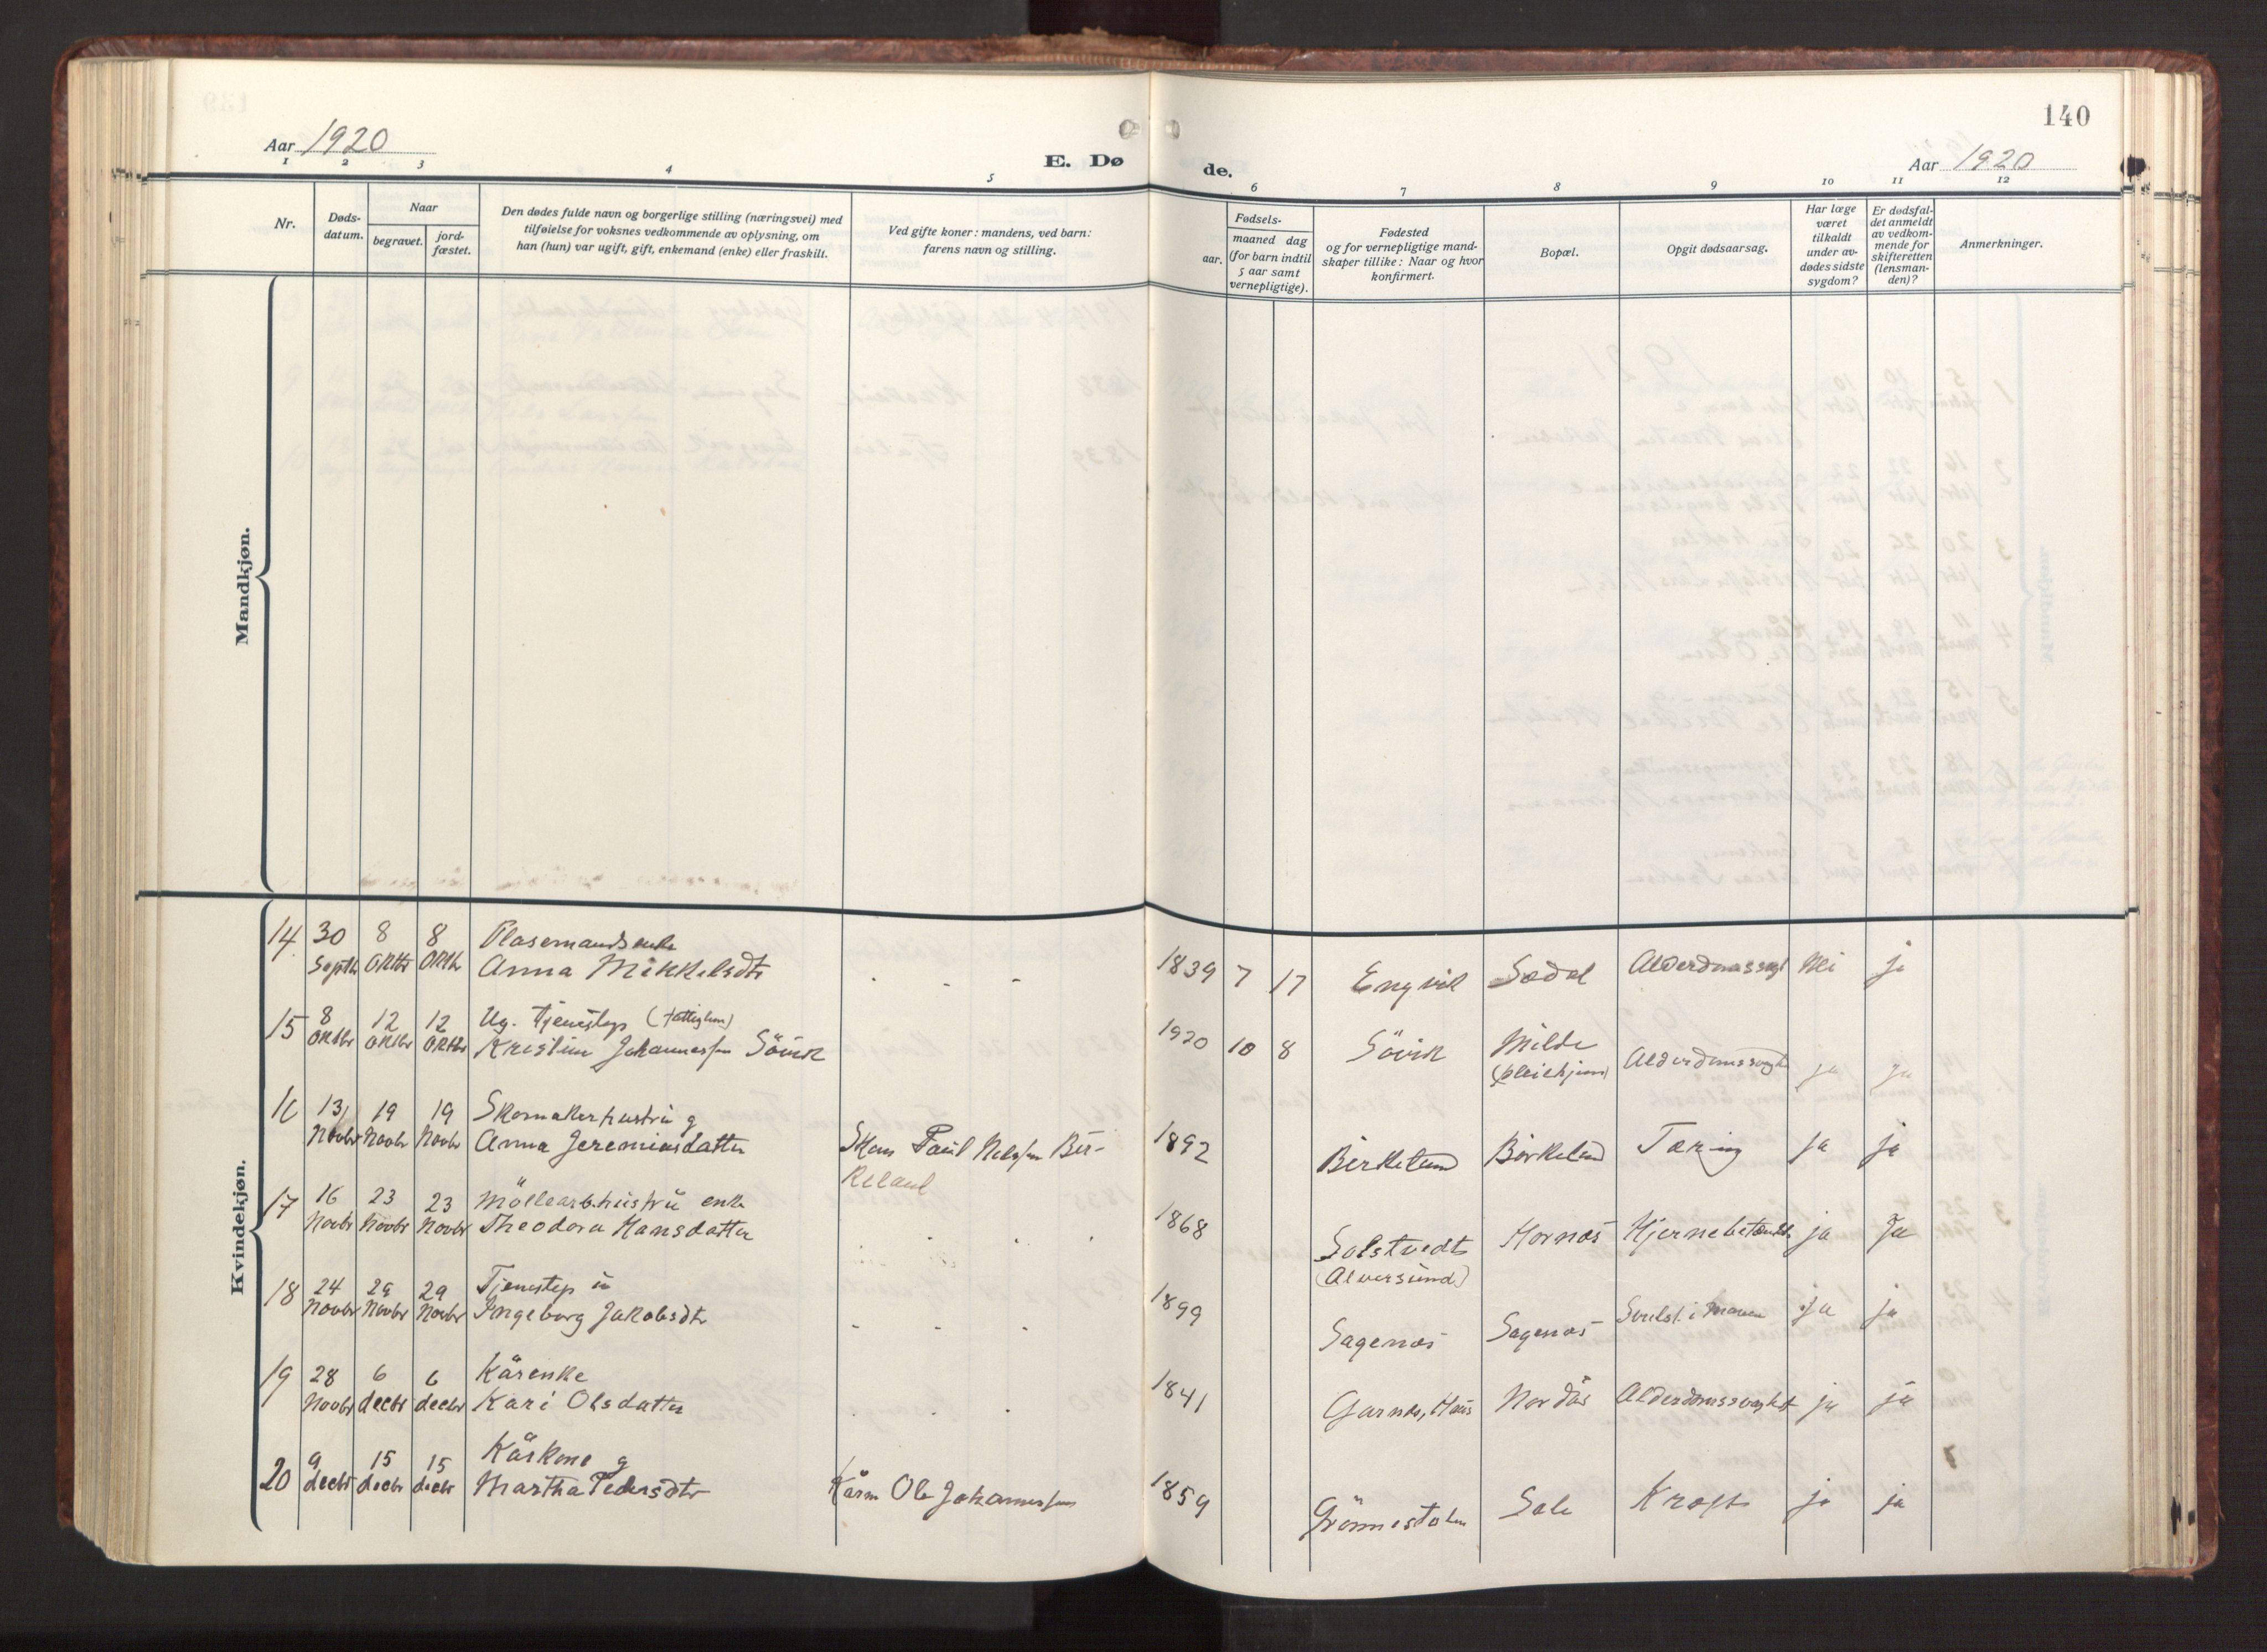 140
Aar 1920
E. Dø
de.
Aar 1920
1 2 3 4 5 6 7 8 9 10 11 12
Nr.
Døds-
datum.
Naar
begravet.
jord-
fæstet.
Den dødes fulde navn og borgerlige stilling (næringsvei) med
tilføielse for voksnes vedkommende av oplysning, om
han (hun) var ugift, gift, enkemand (enke) eller fraskilt.
Ved gifte koner: mandens, ved barn:
farens navn og stilling.
Fødsels-
aar.
maaned dag
(for barn indtil
5 aar samt
vernepligtige).
Fødested
og for vernepligtige mand-
skaper tillike: Naar og hvor
konfirmert.
Bopæl.
Opgit dødsaarsag.
Har læge
været
tilkaldt
under av-
dødes sidste
sygdom?
Er dødsfal-
det anmeldt
av vedkom-
mende for
skifteretten
(lensman-
den)?
Anmerkninger.
Mandkjøn.
Kvindekjøn.
14 30 8 8 Plasemandsenke
Septbr Oktbr Oktbr Anna Mikkelsdtr - - - 1839 7 17 Engvik Sædal Nei ja
15 8 12 12 Ug. Tjenestep
Oktbr Oktbr Oktbr Kristine Johannessen Søvik 1920 10 8 Søvik Milde Alderdomssvagh ja ja
16 13 19 19 Skomakerhustru g
Novbr Novbr Novbr Anna Jeremiasdatter Skom Paul Nelssen Bir-
keland 1892 Birkeland Birkeland Tæring ja ja
17 16 23 23 Møllearb.hustru enke
Novbr Novbr Novbr Theodora Hansdatter . . . 1868 Solstvedt Hornæs ja Ja
(Alversund)
18 24 29 29 Tjenestep u
Novbr Novbr Novbr Ingeborg Jakobsdtr - - - 1899 Sagenæs Sagenæs Svulst i maven ja ja
19 28 6 6 Kårenke
Novbr decbr decbr Kari Olsdatter . . . 1841 Garnæs, Haus Nordås Alderdomssvaghet ja ja
20 9 15 15 Kårkone g
decbr decbr decbr Martha Pedersdtr Kårm Ole Johannessen 1859 Grønnestølen Sale Kræft ja ja